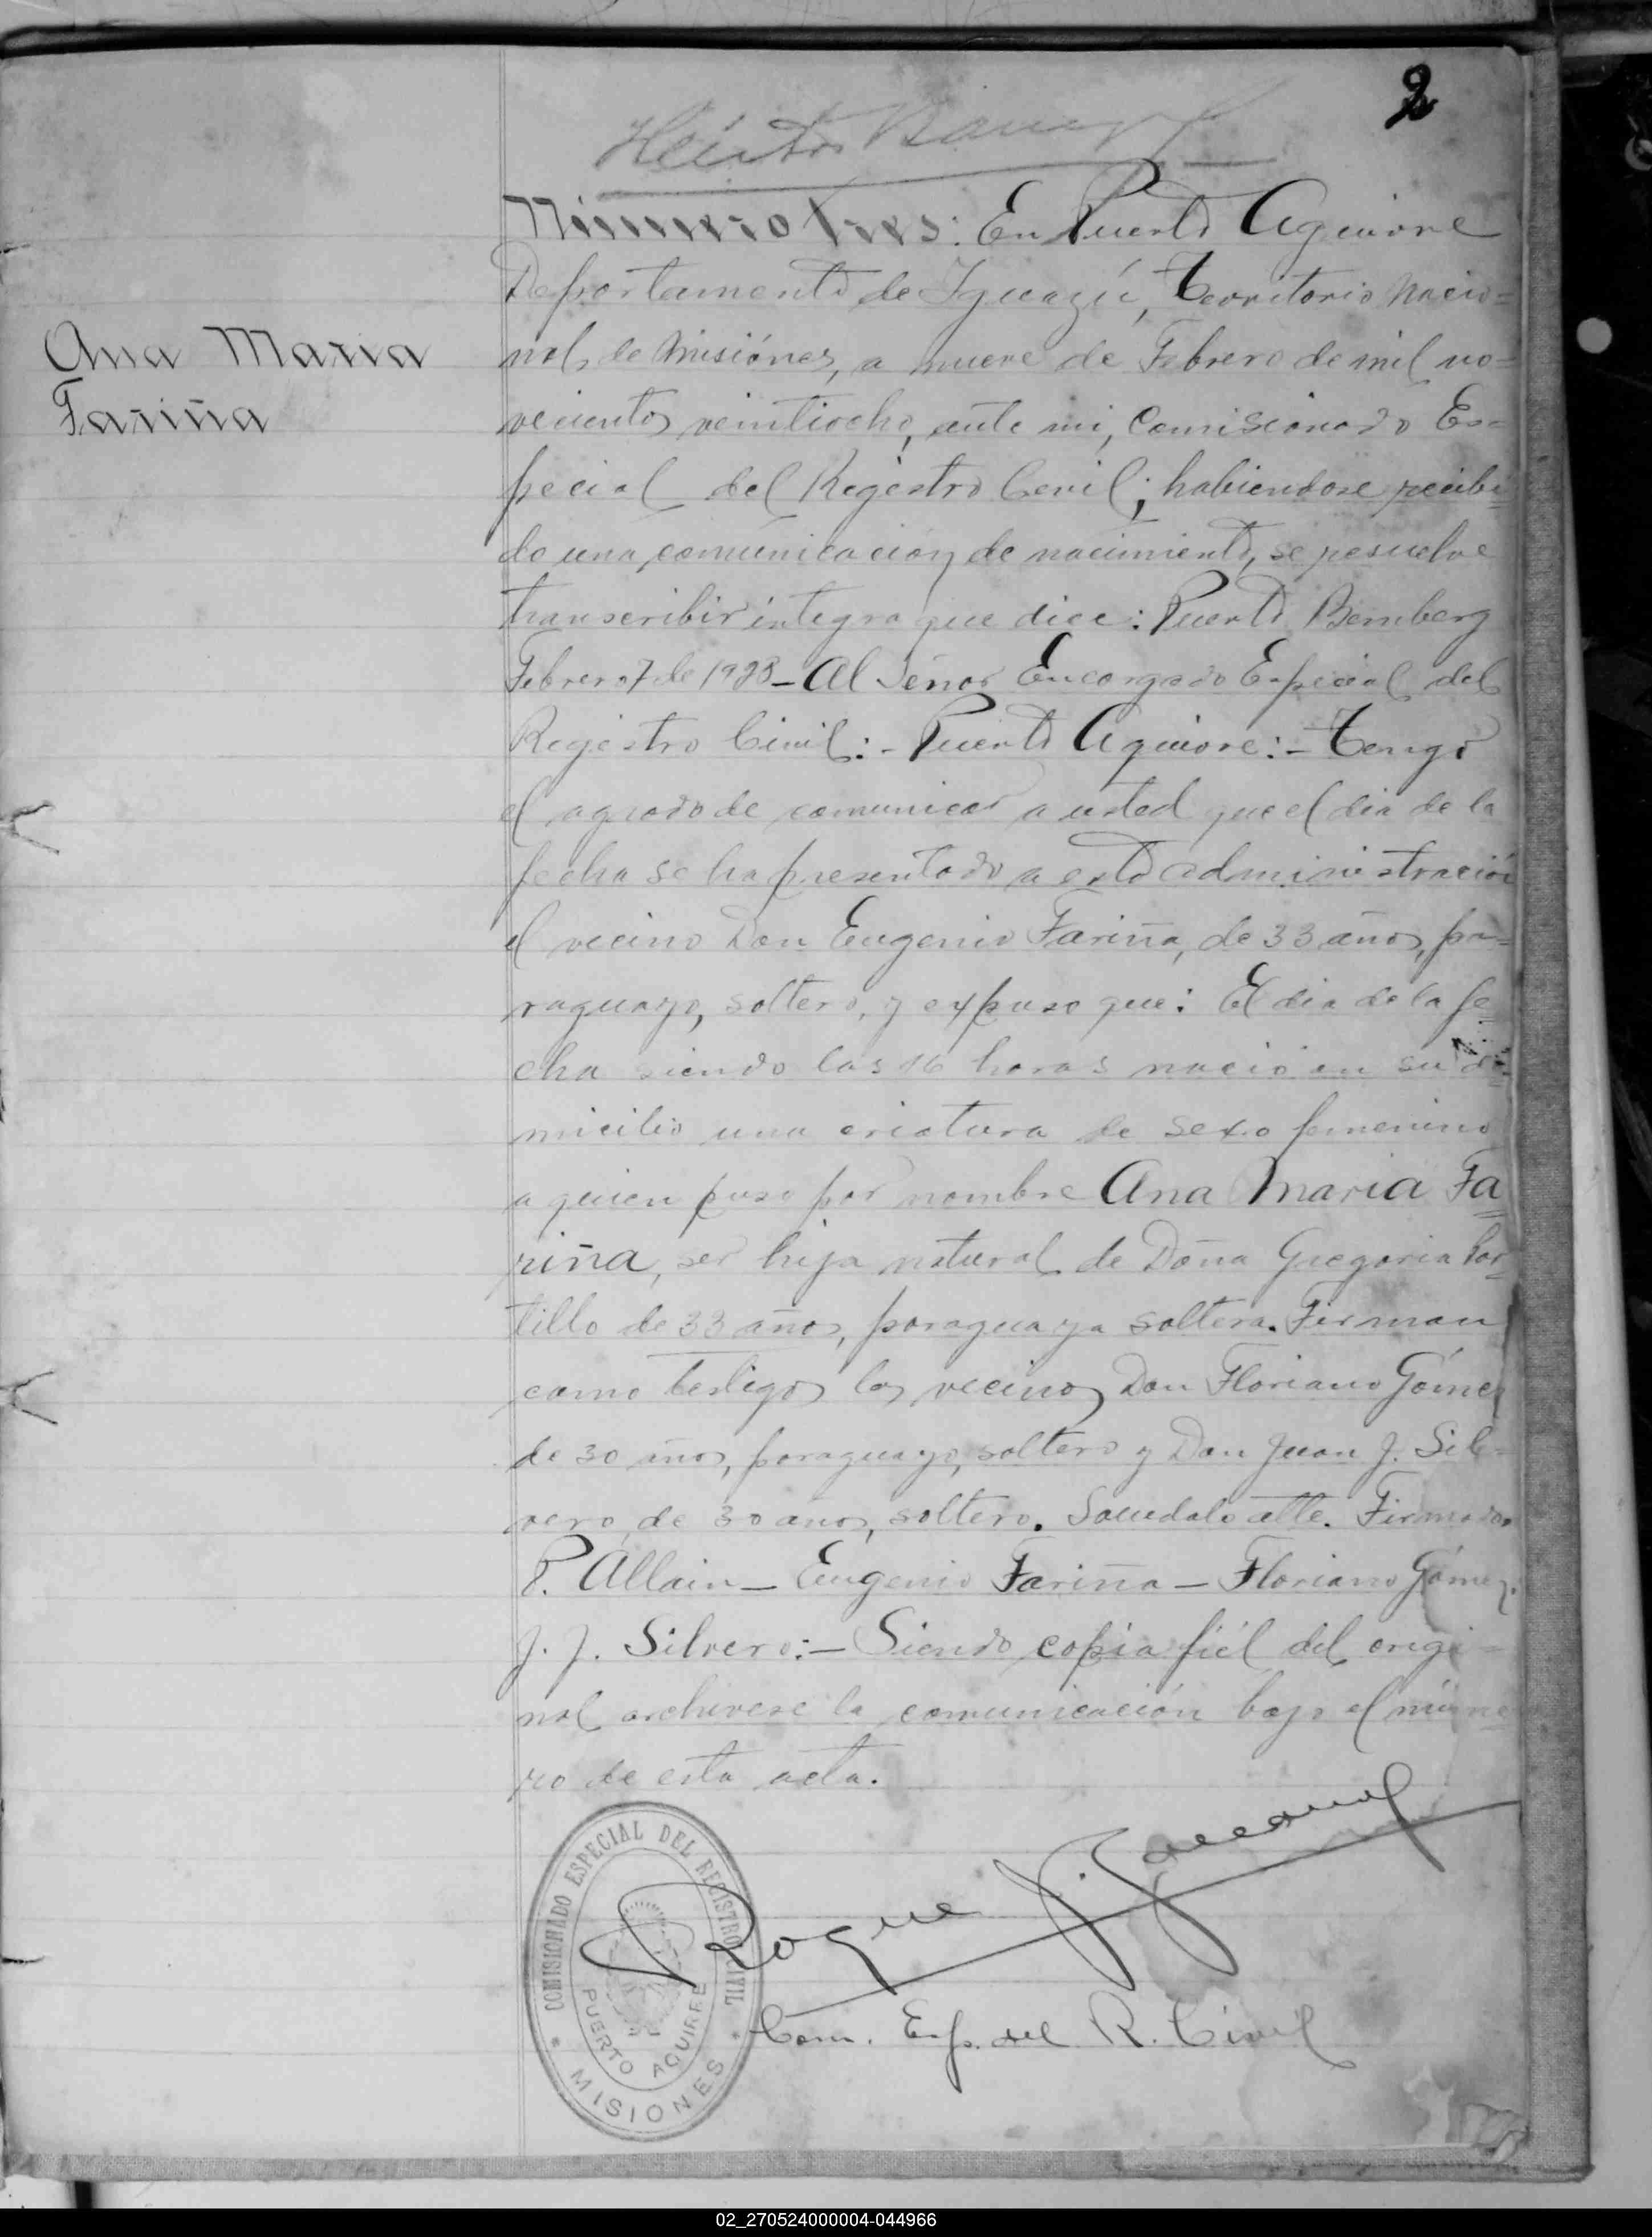 2
Número tres: En Puerto Aguirre
Departamento de Iguazú, Territorio Nacio=
nal de Misiónes, a nueve de Febrero de mil no=
Ana Maria
Fariña
vecientos veintiocho, ante mi, Comisionado Es=
pecial del Registro Civil; habiendose recibi
do una comúnicación de nacimiento, se resuelve
transcribir integra que dice: Puerto Bemberg
Febrero 7 de 1928 - Al Señor Encargado Especial del
Registro Civil:- Puerto Aguirre:- Tengo
el agrado de comunicar a usted que el dia de la
fecha se ha presentado a esta administración
el vecino Don Eugenio Fariña, de 33 años, pa=
raguayo, soltero, y expuso que: El dia de la fe=
cha siendo las 16 horas nació en su do=
micilio una criatura de sexo femenino
a quien puso por nombre Ana Maria Fa=
riña, ser hija natural de Doña Gregoria Por=
tillo de 33 años, paraguaya soltera. Firman
como testigos los vecinos Don Floriano Gómez
de 30 años, paraguayo, soltero y Don Juan J. Sil=
vero, de 30 años, soltero. Saludalo atte. Firmado.
P. Allain - Eugenio Fariña - Floriano Gómez.
J. J. Silvero:- Siendo copia fiél del origi=
nal archivese la comunicación bajo el núme=
ro de esta acta.
Roque J.
Com. Esp. del R. Civil
COMISIONADO ESPECIAL DEL REGISTRO CIVIL
PUERTO AGUIRRE
* MISIONES *
02_270524000004-044966